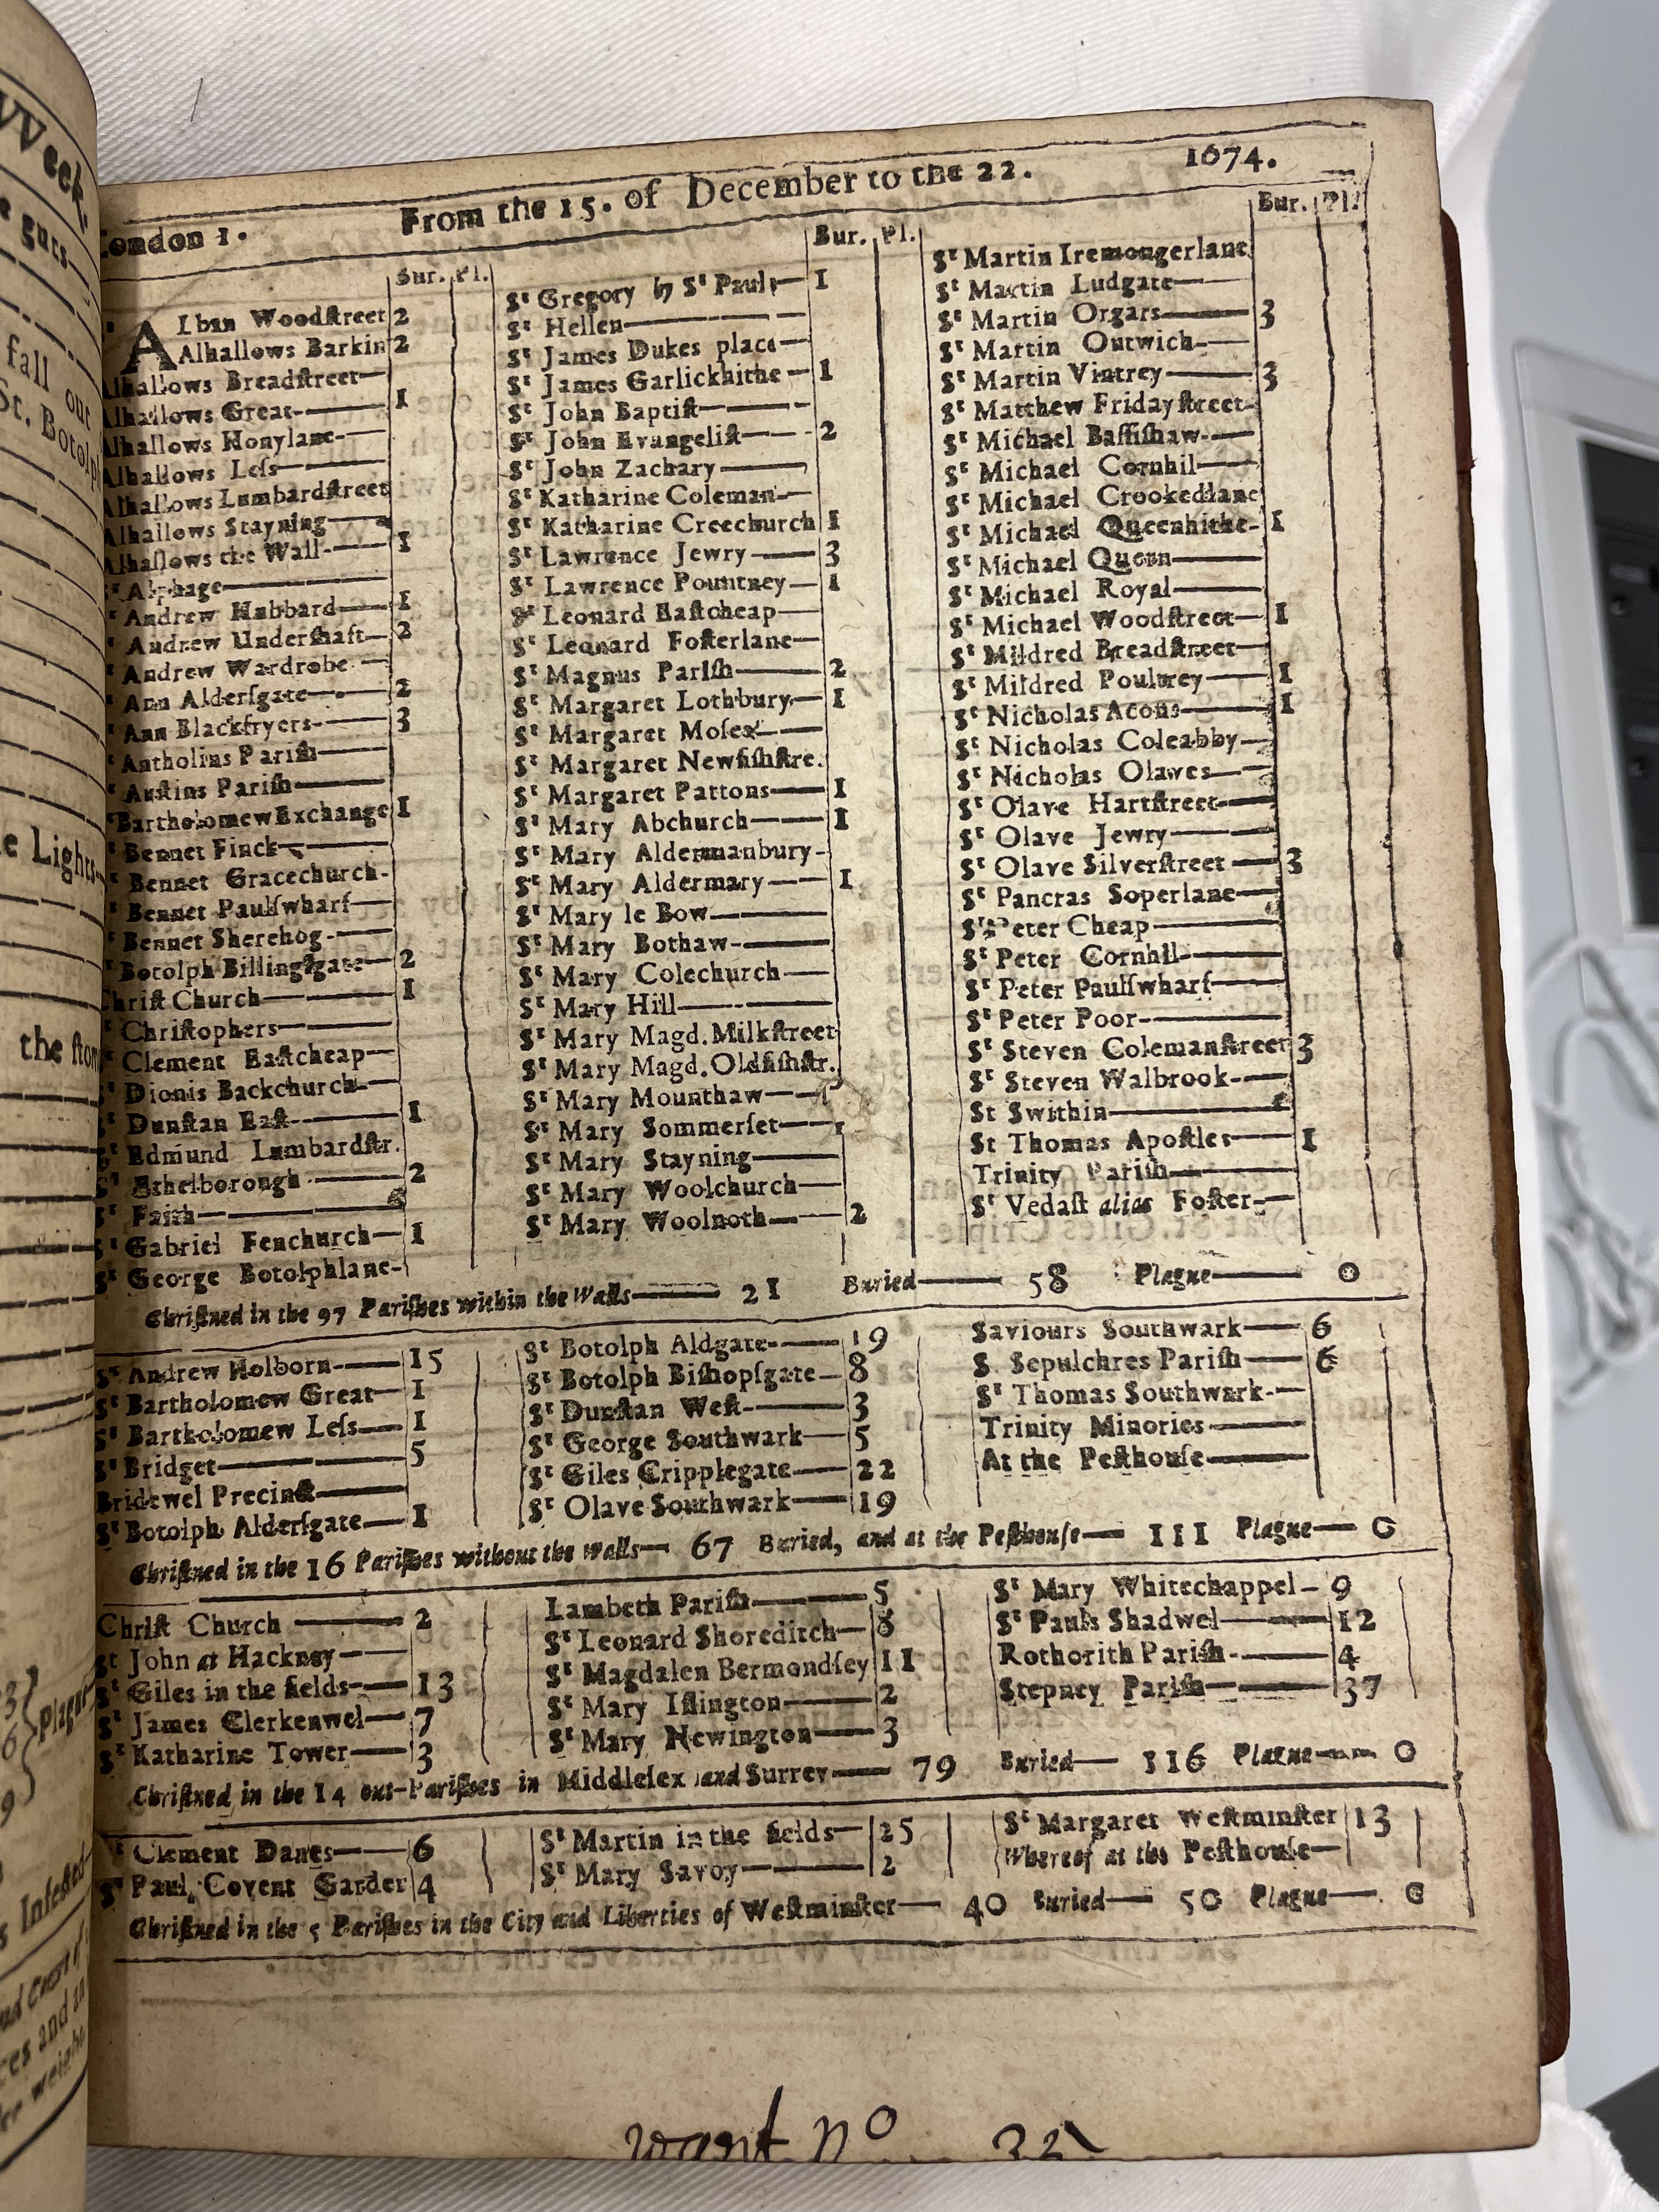 VVeek.
e guts
fall out
St. Botolp
e Lights
the stom
Plague
Infected
London 1. From the 15. of December to the 22. 1674.
Bur. Pl.
Alban Woodstreet 2
Alhallows Barkin 2
Alhallows Breadstreet—
Alhallows Great— 1
Alhallows Honylane—
Alhallows Less—
Alhallows Lumbardstreet
Alhallows Stayning—
Alhallows the Wall— 1
St Alphage—
St Andrew Hubbard— 1
St Andrew Undershaft— 2
St Andrew Wardrobe—
St Ann Aldersgate— 2
St Ann Blackfryers— 3
St Antholins Parish—
St Austins Parish—
St Bartholomew Exchange 1
St Bennet Finck—
St Bennet Gracechurch-
St Bennet Paulswharf—
St Bennet Sherehog—
St Botolph Billingsgate— 2
Christ Church— 1
St Christophers—
St Clement Eastcheap—
St Dionis Backchurch—
St Dunstan East— 1
St Edmund Lumbardstr.
St Ethelborough— 2
St Faith—
St Gabriel Fenchurch— 1
St George Botolphlane-
Bur. Pl.
St Gregory by St Pauls— 1
St Hellen—
St James Dukes place—
St James Garlickhithe— 1
St John Baptist—
St John Evangelist— 2
St John Zachary—
St Katharine Coleman—
St Katharine Creechurch 1
St Lawrence Jewry— 3
St Lawrence Pountney— 1
St Leonard Eastcheap—
St Leonard Fosterlane—
St Magnus Parish— 2
St Margaret Lothbury— 1
St Margaret Moses—
St Margaret Newfishstre.
St Margaret Pattons— 1
St Mary Abchurch— 1
St Mary Aldermanbury-
St Mary Aldermary— 1
St Mary le Bow—
St Mary Bothaw—
St Mary Colechurch—
St Mary Hill—
St Mary Magd. Milkstreet
St Mary Magd. Oldfishstr.
St Mary Mounthaw—
St Mary Sommerset—
St Mary Stayning—
St Mary Woolchurch—
St Mary Woolnoth— 2
Bur. Pl.
St Martin Iremongerlane
St Martin Ludgate—
St Martin Orgars— 3
St Martin Outwich—
St Martin Vintrey— 3
St Matthew Fridaystreet-
St Michael Bassishaw—
St Michael Cornhil—
St Michael Crookedlane
St Michael Queenhithe- 1
St Michael Quern—
St Michael Royal—
St Michael Woodstreet— 1
St Mildred Breadstreet—
St Mildred Poultrey— 1
St Nicholas Acons— 1
St Nicholas Coleabby—
St Nicholas Olaves—
St Olave Hartstreet—
St Olave Jewry—
St Olave Silverstreet— 3
St Pancras Soperlane—
St Peter Cheap—
St Peter Cornhil—
St Peter Paulswharf—
St Peter Poor—
St Steven Colemanstreet 3
St Steven Walbrook—
St Swithin—
St Thomas Apostles— 1
Trinity Parish—
St Vedast alias Foster—
Christned in the 97 Parishes within the Walls— 21 Buried— 58 Plague— 0
St Andrew Holborn— 15
St Bartholomew Great— 1
St Bartholomew Less— 1
St Bridget— 5
Bridewel Precinct—
St Botolph Aldersgate— 1
St Botolph Aldgate— 19
St Botolph Bishopsgate— 8
St Dunstan West— 3
St George Southwark— 5
St Giles Cripplegate— 22
St Olave Southwark— 19
Saviours Southwark— 6
S. Sepulchres Parish— 6
St Thomas Southwark—
Trinity Minories—
At the Pesthouse—
Christned in the 16 Parishes without the Walls— 67 Buried, and at the Pesthouse— 111 Plague— 0
Christ Church— 2
St John at Hackney—
St Giles in the fields— 13
St James Clerkenwel— 7
St Katharine Tower— 3
Lambeth Parish— 5
St Leonard Shoreditch— 8
St Magdalen Bermondsey 11
St Mary Islington— 2
St Mary Newington— 3
St Mary Whitechappel— 9
St Pauls Shadwel— 12
Rothorith Parish— 4
Stepney Parish— 37
Christned in the 14 out-Parishes in Middlesex and Surrey— 79 Buried— 116 Plague— 0
St Clement Danes— 6
St Paul, Covent Garden 4
St Martin in the fields— 25
St Mary Savoy— 2
St Margaret Westminster 13
Whereof at the Pesthouse—
Christned in the 5 Parishes in the City and Liberties of Westminster— 40 Buried— 50 Plague— 0
want no